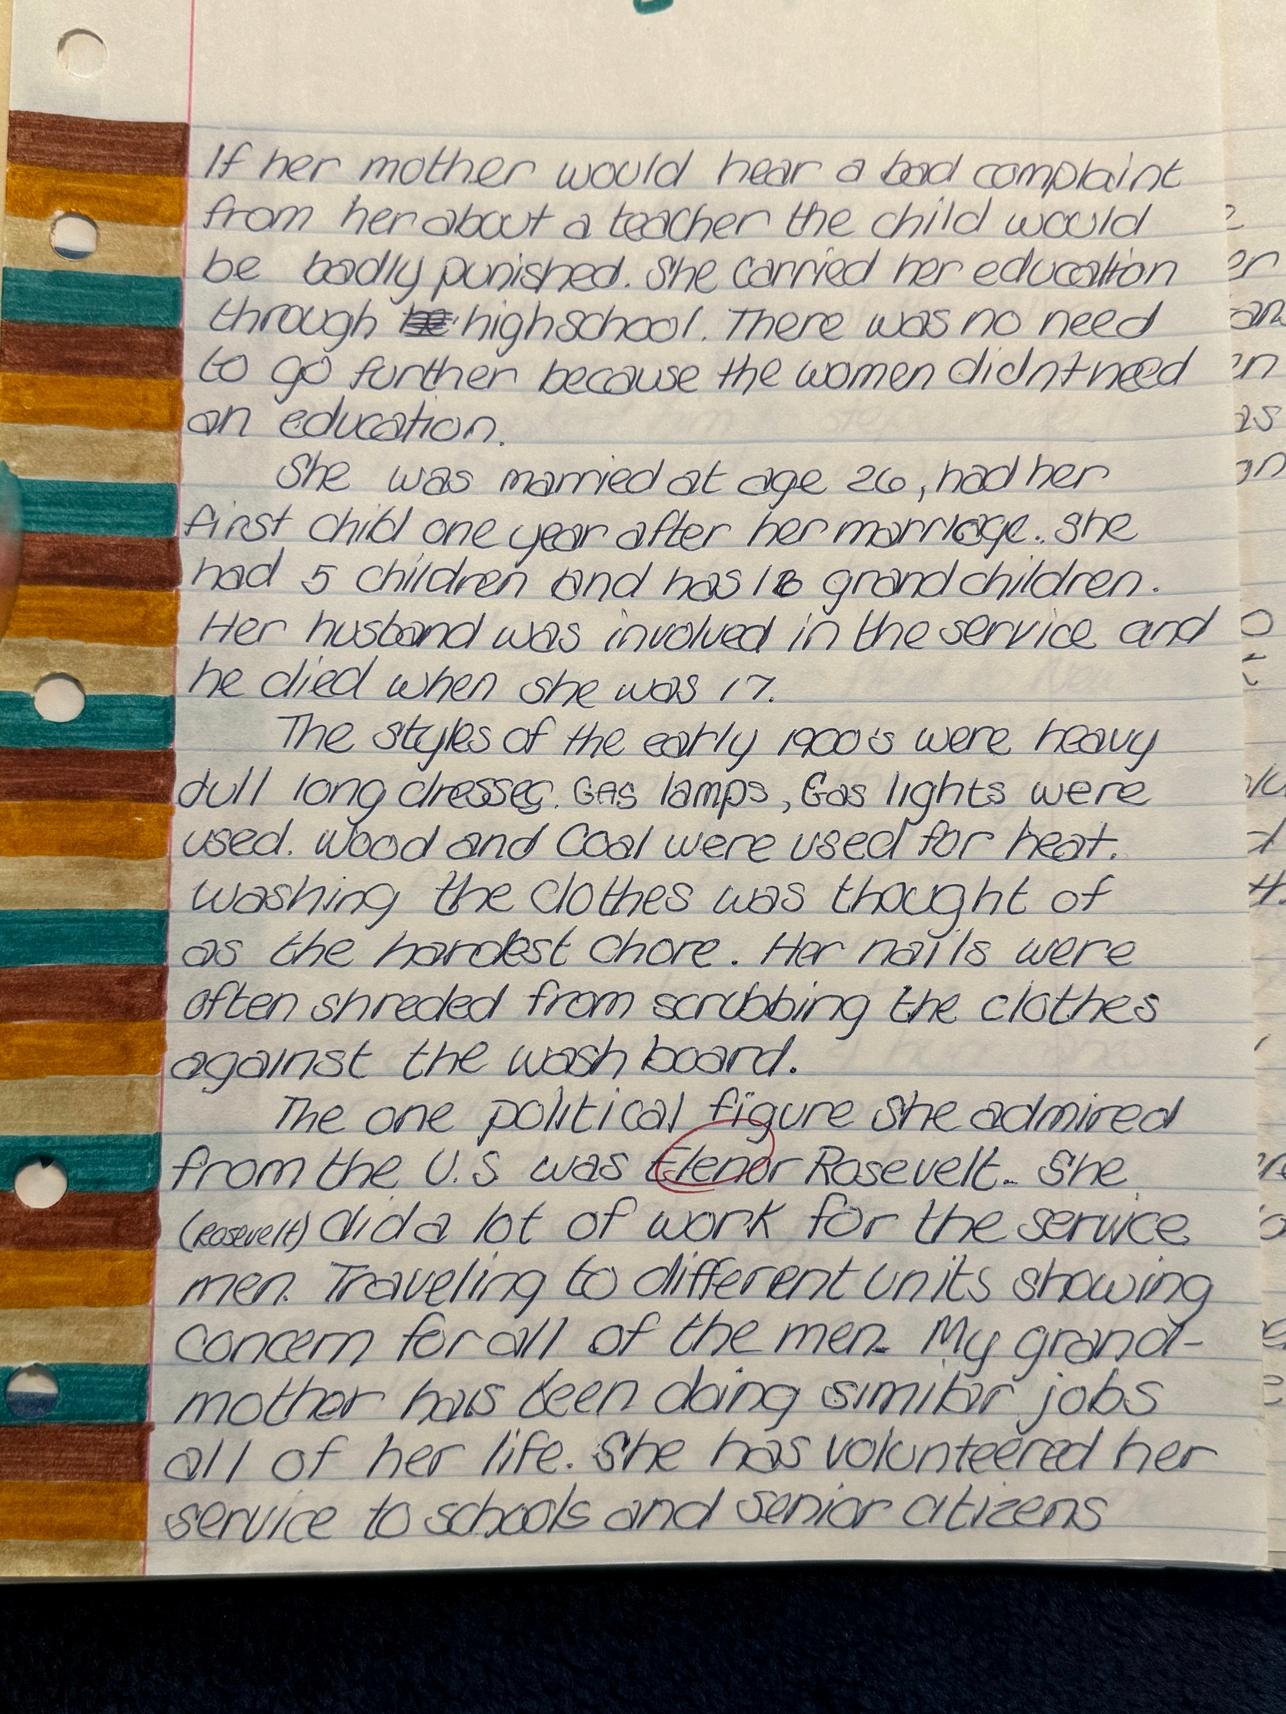 If her mother would hear a bad complaint
from her about a teacher the child would
be badly punished. She carried her education
through highschool. There was no need
to go further because the women didnt need
an education.
She was married at age 26, had her
first child one year after her marriage. She
had 5 children and has 18 grandchildren.
Her husband was involved in the service and
he died when she was 17.
The styles of the early 1900's were heavy
dull long dresses. GAS lamps, Gas lights were
used. Wood and Coal were used for heat.
Washing the clothes was thought of
as the hardest chore. Her nails were
often shreded from scrubbing the clothes
against the wash board.
The one political figure she admired
from the U.S. was Elenor Rosevelt. She
(Rosevelt) did a lot of work for the service
men. Traveling to different units showing
concern for all of the men. My grand-
mother has been doing similar jobs
all of her life. She has volunteered her
service to schools and senior citizens